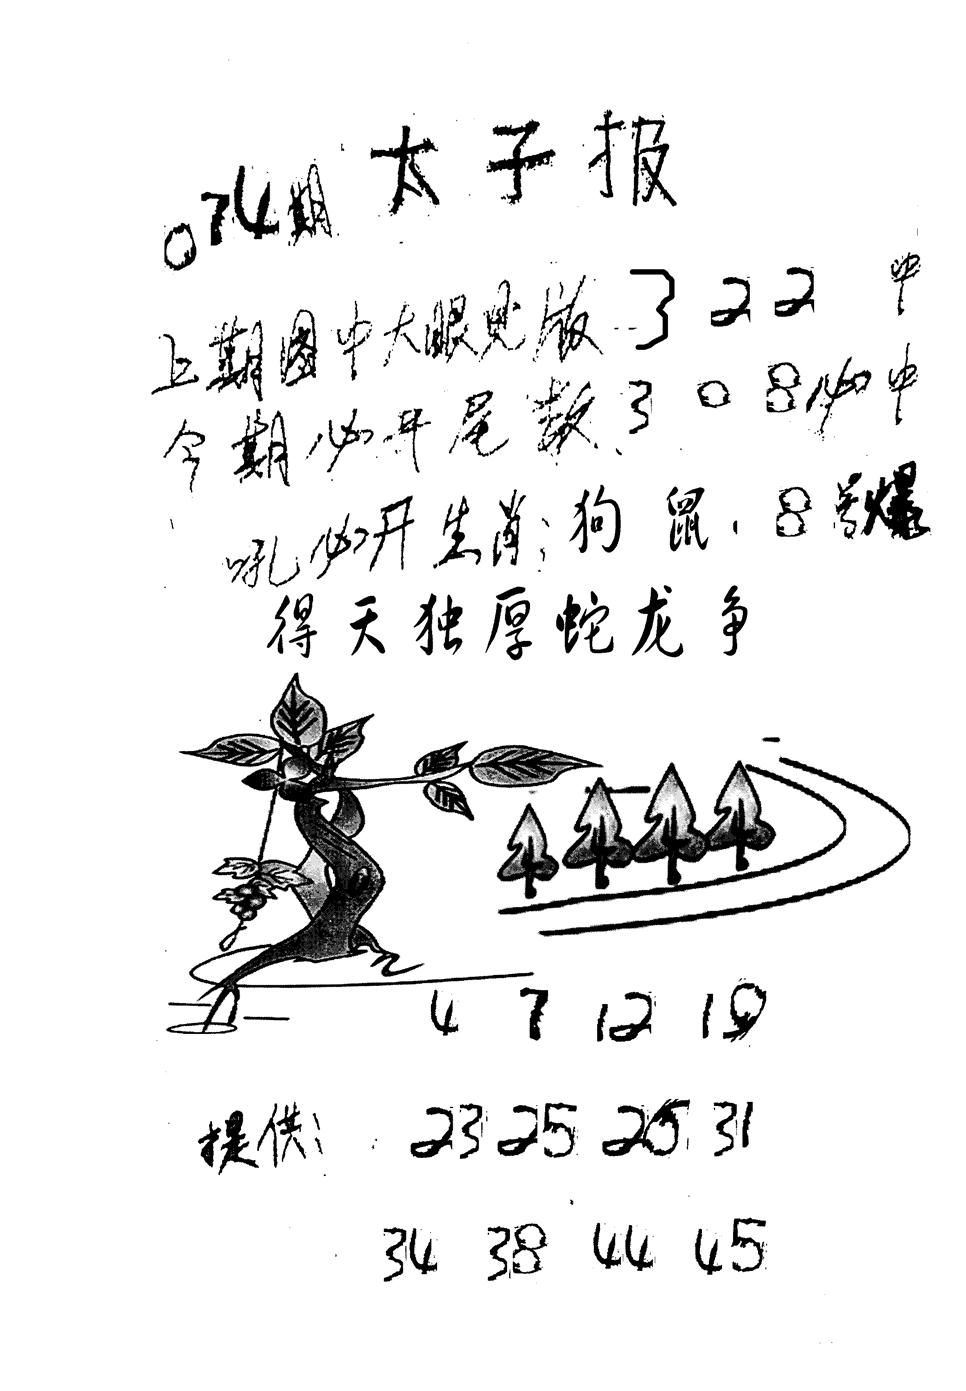 太子报
074期
上期图中大眼见版 3 2 2 中
今期必开尾数 3 0 8 必中
吼必开生肖:狗 鼠. 8 号爆
得天独厚蛇龙争
4 7 12 19
提供: 23 25 26 31
34 38 44 45